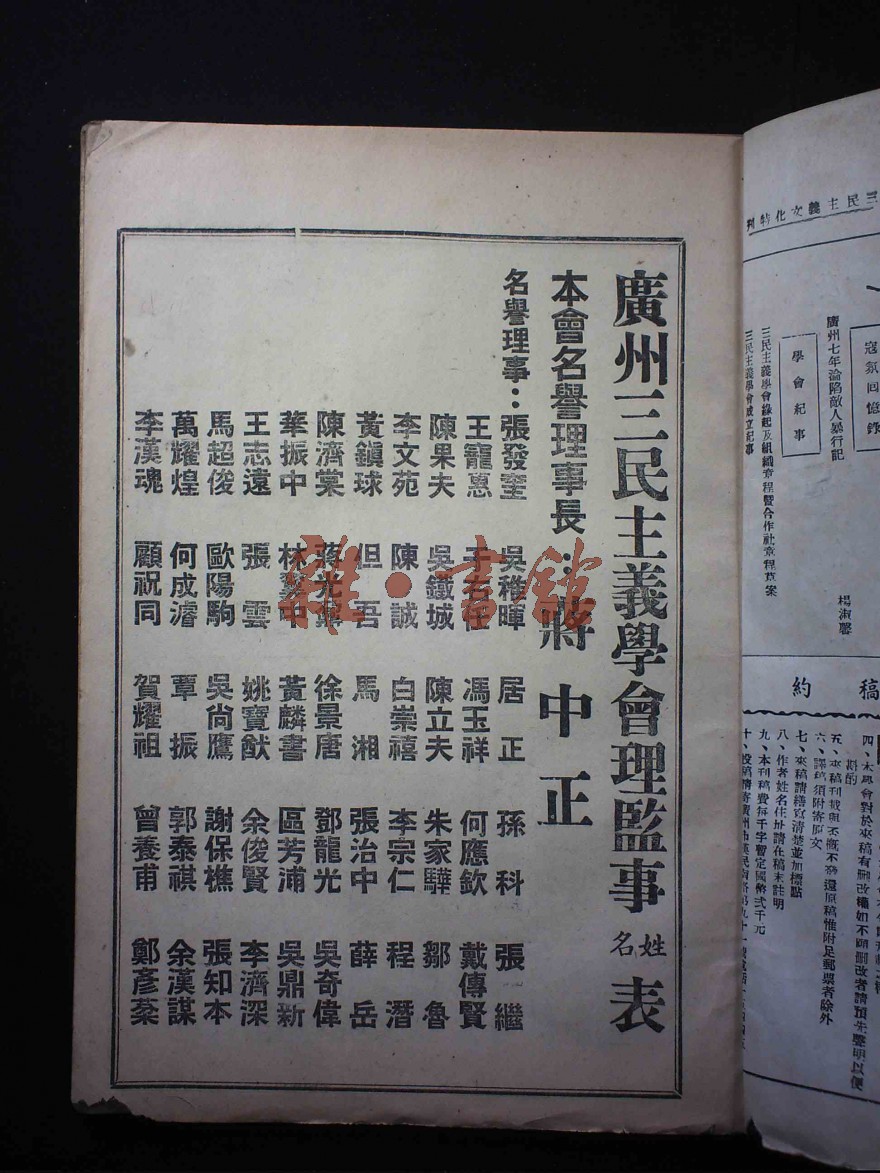 三民主義文化特刊
寇氛回憶錄
廣州七年淪陷敵人暴行記 楊淑馨
學會紀事
三民主義學會緣起及組織章程暨合作社章程草案
三民主義學會成立紀事
稿約
四、本學會對於來稿有刪改權如不願刪改者請預先聲明以便
五、來稿刊載與否概不發還原稿惟附足郵票者除外
六、譯稿須附寄原文
七、來稿請繕寫清楚並加標點
八、作者姓名住址請在稿末註明
九、本刊稿費每千字暫定國幣弍千元
十、投稿請寄廣州市漢民南路
廣州三民主義學會理監事姓名表
本會名譽理事長：蔣中正
名譽理事：張發奎 吳稚暉 居正 孫科 張繼
王寵惠 于右任 馮玉祥 何應欽 戴傳賢
陳果夫 吳鐵城 陳立夫 朱家驊 鄒魯
李文苑 陳誠 白崇禧 李宗仁 程潛
黃鎮球 但吾 馬湘 張治中 薛岳
陳濟棠 蔣光鼐 徐景唐 鄧龍光 吳奇偉
華振中 林翼中 黃麟書 區芳浦 吳鼎新
王志遠 張雲 姚寶猷 余俊賢 李濟深
馬超俊 歐陽駒 吳尚鷹 謝保樵 張知本
萬耀煌 何成濬 覃振 郭泰祺 余漢謀
李漢魂 顧祝同 賀耀祖 曾養甫 鄭彥棻
雜·書館